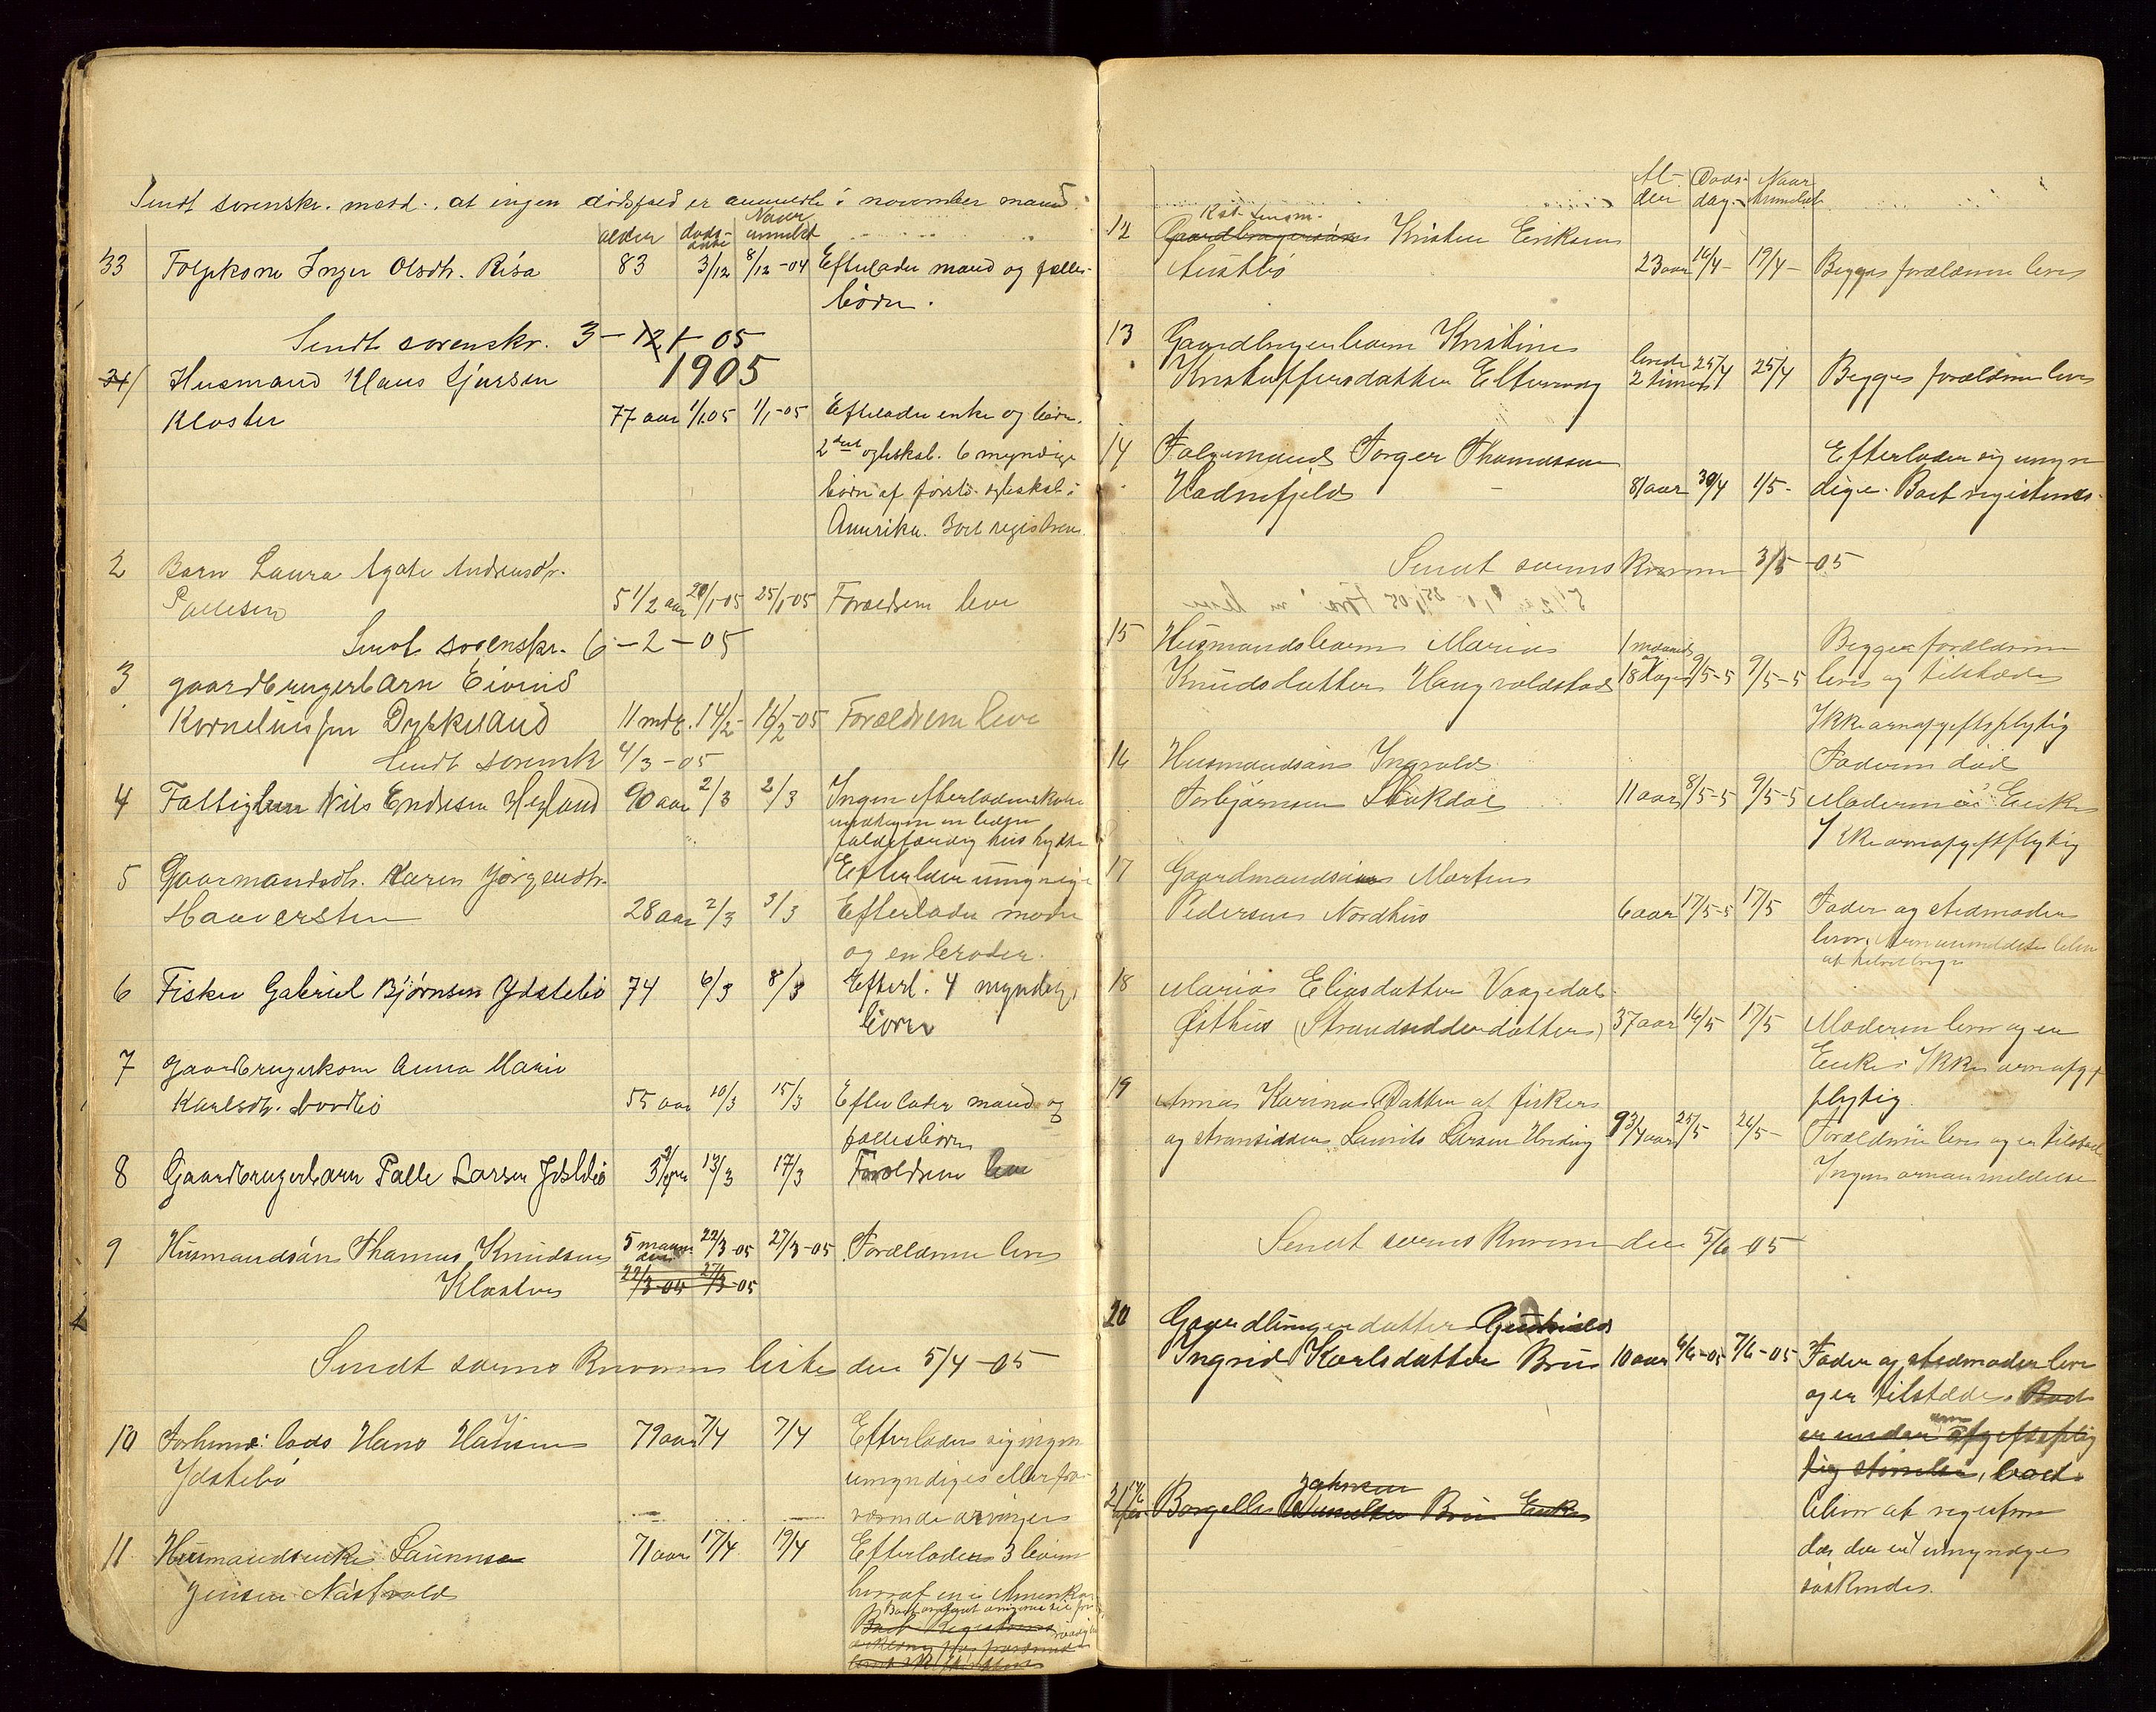 Sendt sorenskr. medd. at ingen dödsfald er anmeldte i november maaned.
alder döds- Naar
anmeldt
33 Folgekone Inger Olsdtr. Risa 83 3/12 8/12-04 Efterlader mand og fælles-
börn.
Sendt sorenskr. 3-1-05
1905
Husmand Hans Sjursen
Kloster 77 aar 1/1.05 1/1-05 Efterlader enke og börn.
2det egteskab. 6 myndige
börn af første egteskab i
Amerika. Boet registreres.
2 Barn Laura Agate Andreasdtr.
Pallesen 5 1/2 aar 20/1-05 25/1-05 Forældrene leve
Sendt sorenskr. 6-2-05
3 gaardbrugerbarn Eivind
Korneliussen Dyskeland 11 mdr. 14/2- 16/2-05 Forældrene leve
Sendt sorensk 4/3-05
4 Fattiglem Nils Endresen Hegland 90 aar 2/3 2/3 Ingen efterladenskaber
undtagen en liden
faldefærdig hus hytte
5 Gaarmandsdtr. Karen Jörgensdtr. Efterlader umyndige
Haaversten 28 aar 2/3 3/3 Efterlader moder
og en broder.
6 Fisker Gabriel Bjørnsen Ydstebö 74 6/3 8/3 Efterl. 4 myndige
börn
7 gaardbrugerkone Anna Marie
Karlsdtr. 55 aar 10/3 15/3 Efterlader mand og
fællesbörn
8 Gaardbrugerbarn Palle Larsen Ydstebö 13/3 17/3 Forældrene leve
9 Husmandsön Thomas Knudsen 5 maaneder 22/3-05 27/3-05 Forældrene leve
Kloster 22/3-05 27/3-05
Sendt sorenskriveren liste den 5/4-05
10 Forhenv: lods Hans Hansen 79 aar 7/4 7/4 Efterlader sig ingen
Ydstebö umyndige eller fra-
værende arvinger
11 Husmandsenke Laurense 71 aar 17/4 19/4 Efterlader 3 börn
Jensen Nastvold hvoraf en i Amerika
Al- Døds- Naar
der dag. Anmeldt
12 Gaardbrugersön Kristen Eriksen
Austbö 23 aar 16/4- 19/4- Begge forældrene leve
13 Gaardbrugerbarn Kristine levede
Kristoffersdatter Eltervaag 2 timer 25/4 25/4 Begge forældrene leve
14 Folgemand Torger Thomassen Efterlader sig umyn
Hadnefjeld 81 aar 30/4 1/5- dige. Boet registreres.
Sendt sorenskriveren 3/5-05
15 Husmandsbarn Maria 1 maaned Begge forældrene
Knudsdatter Haugvaldstad 18 dage 9/5-5 9/5-5 leve og tilstede
Ikke arveafgiftspligtig
16 Husmandsön Ingvald Faderen död
Torbjørnsen 11 aar 8/5-5 9/5-5 Moderen Enke
Ikke arveafgiftspligtig
17 Gaardmandsön Morten
Pedersen Nordhus 6 aar 17/5-5 17/5 Fader og stedmoder
lever.
18 Maria Eliasdatter Vaagedal
Østhus (Strandsidderdatter) 37 aar 16/5 17/5 Moderen lever og er
Enke. Ikke arveafgifts-
pligtig.
19 Anna Karina Datter af fisker
og strandsidder Laurits Larsen Hveding 9 3/4 aar 25/5 26/5- Forældrene leve og er tilstede
Ingen arveanmeldelse
Sendt sorenskriveren den 5/6-05
20 Gaardbrugerdatter Gudrid
Ingrid Karlsdatter Bru 10 aar 6/6-05 7/6-05 Fader og stedmoder leve
og er tilstede. Boet
er under arveafgiftsplig
tig störrelse, boet
bliver at registrere
da der er 4 umyndige
söskende.
21 Johnsen
Borgelle Bru Enke